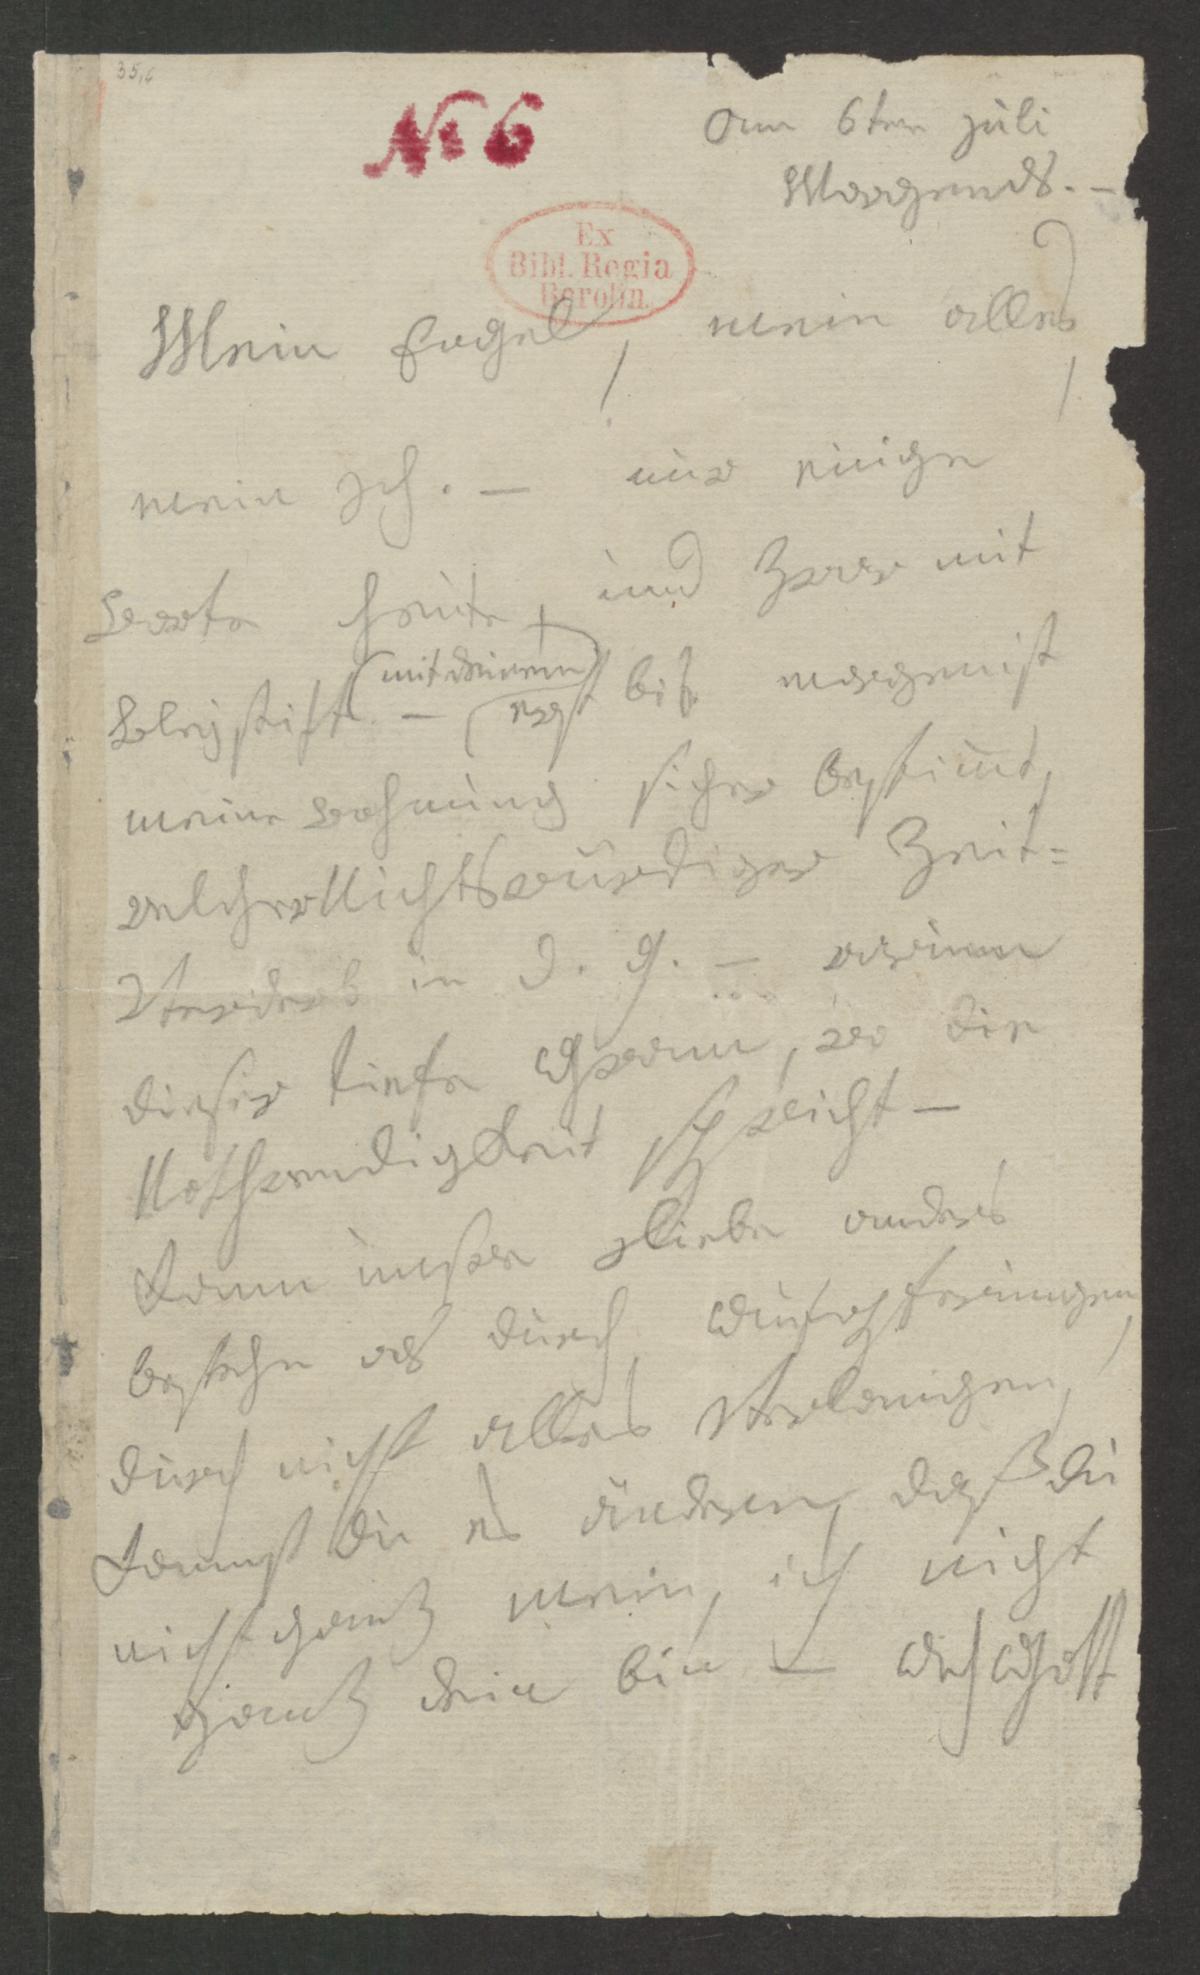 35,6
N: 6
am 6ten juli
Morgends. –
Mein Engel, mein alles,
mein Ich. – nur einige
Worte heute, und zwar mit
Bleystift – (mit deinem)
erst bis morgen ist
meine wohnung sicher bestimmt,
welcher Nichtswürdiger Zeit-
Verderb in d. g. – warum
dieser tiefe Gram, wo die
Nothwendigkeit spricht –
Kann unsre Liebe anders
bestehn als durch Aufopferungen,
durch nicht alles Verlangen,
kannst du es ändern, daß du
nicht ganz mein, ich nicht
ganz dein bin – Ach Gott
Ex
Bibl. Regia
Berolin.